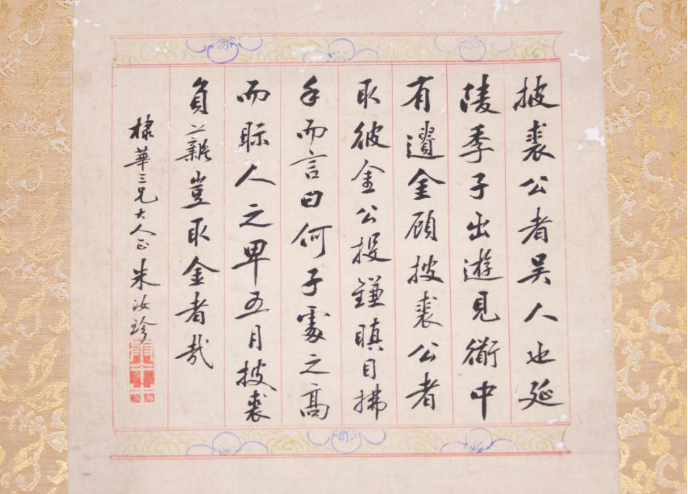 披裘公者吴人也延
陵季子出遊見衜中
有遺金顧披裘公者
取彼金公投鎌瞋目拂
手而言曰何子處之高
而眎人之卑五月披裘
負薪豈取金者哉
棣華三兄大人正 朱汝珍